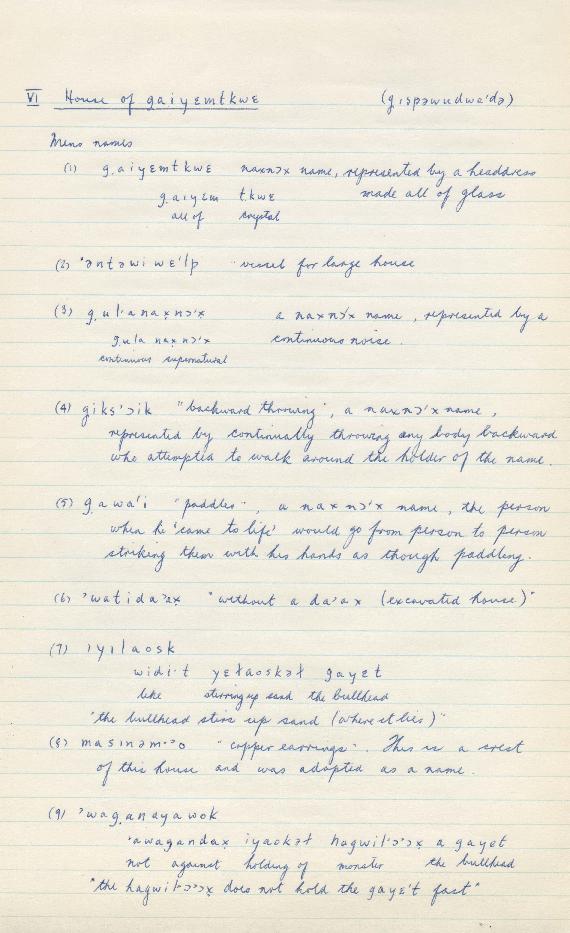 VI House of g̣aiyɛmtkwɛ (g̣ıspəwudwɛ'də)
Mens names
(1) g̣aiyɛmtkwɛ naxnɔx name, represented by a headdress
g̣aıyɛm t.kwɛ made all of glass
all of crystal
(2) 'əntəwiwɛ'lp vessel for large house
(3) g̣ul·anax̣nɔ'x a naxnɔ'x name, represented by a
g̣ula nax̣nɔ'x continuous noise.
continuous supernatural
(4) giks'ɔik "backward throwing", a naxnɔ'x name,
represented by continually throwing any body backward
who attempted to walk around the holder of the name.
(5) g̣awa'i "paddles", a naxnɔ'x name, the person
when he 'came to life' would go from person to person
striking them with his hands as though paddling.
(6) 'watida'ax̣ "without a da'ax (excavated house)"
(7) ıyılaosk
widi·t yɛłaoskəł gayɛt
like stirring up sand the bullhead
"the bullhead stirs up sand (where it lies)"
(8) masınəm·'o "copper earrings". This is a crest
of this house and was adopted as a name.
(9) 'wag̣anayawok
'awagandax̣ iyaokəł hagwil'ɔ'ɔx̣ a gayɛt
not against holding of monster the bullhead
"the hagwil'ɔ'ɔx̣ does not hold the gayɛ't fast"